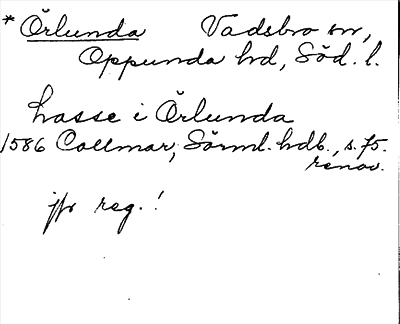 * Örlunda Vadsbro sn,
Oppunda hd, Söd. l.
Lasse i Örlunda
1586 Collmar, Sörml. hdb., s. 75.
renov.
jfr reg.!